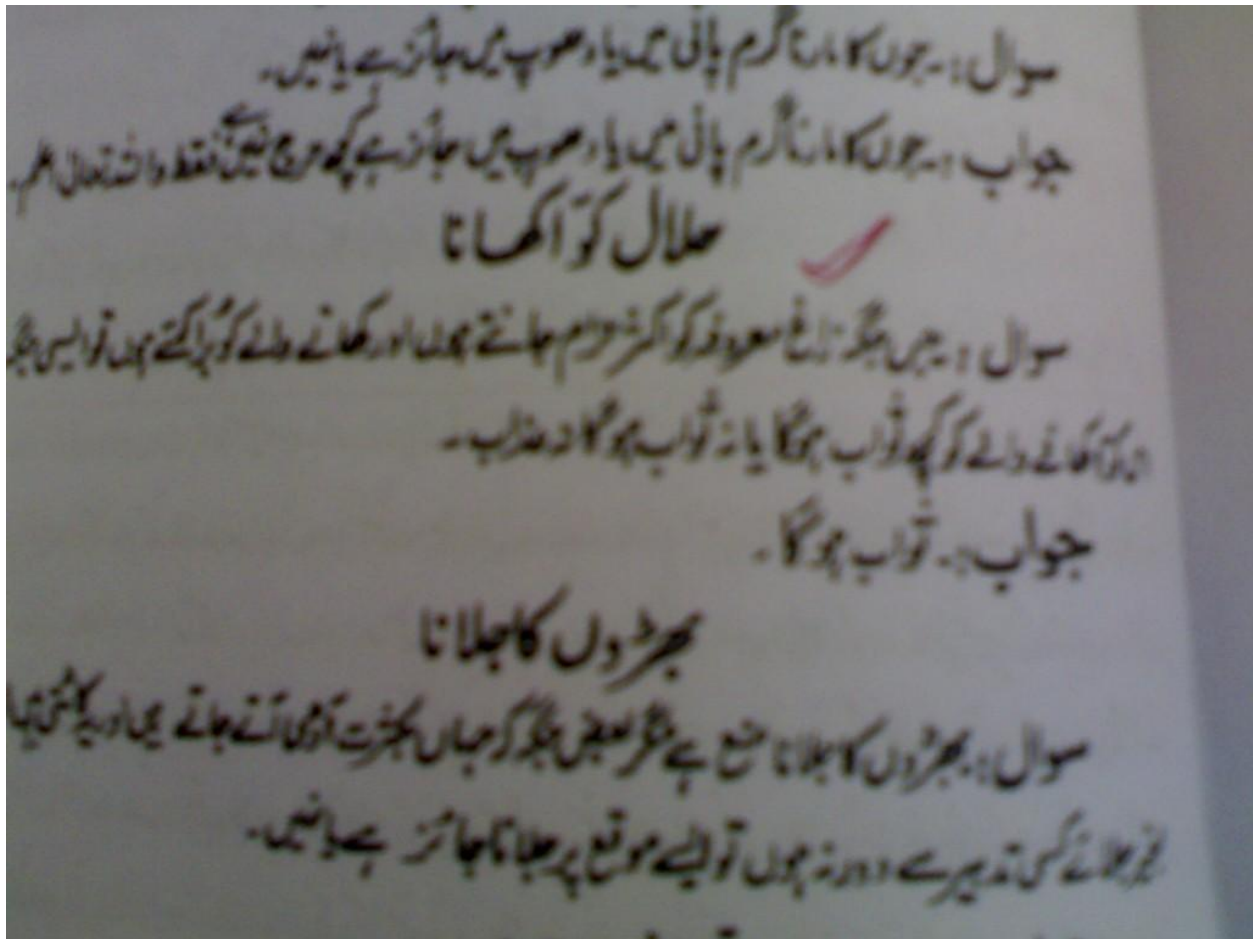 سوال :۔ جوں کا مارنا گرم پانی میں یا دھوپ میں جائز ہے یا نہیں۔
جواب :۔ جوں کا مارنا گرم پانی میں یا دھوپ میں جائز ہے کچھ حرج نہیں ہے فقط واللہ تعالی اعلم۔
حلال کوّا کھانا
سوال :۔ جس جگہ زاغ معروفہ کو اکثر حرام جانتے ہوں اور کھانے والے کو بُرا کہتے ہوں تو ایسی جگہ
کوّا کھانے والے کو کچھ ثواب ہوگا یا نہ ثواب ہوگا نہ عذاب ۔
جواب :۔ ثواب ہوگا ۔
بھڑوں کا جلانا
سوال :۔ بھڑوں کا جلانا منع ہے مگر بعض جگہ کہ جہاں بکثرت آدمی آتے جاتے ہیں اور یہ کاٹتی
بغیر جلائے کسی تدبیر سے دور نہ ہوں تو ایسے موقع پر جلانا جائز ہے یا نہیں۔